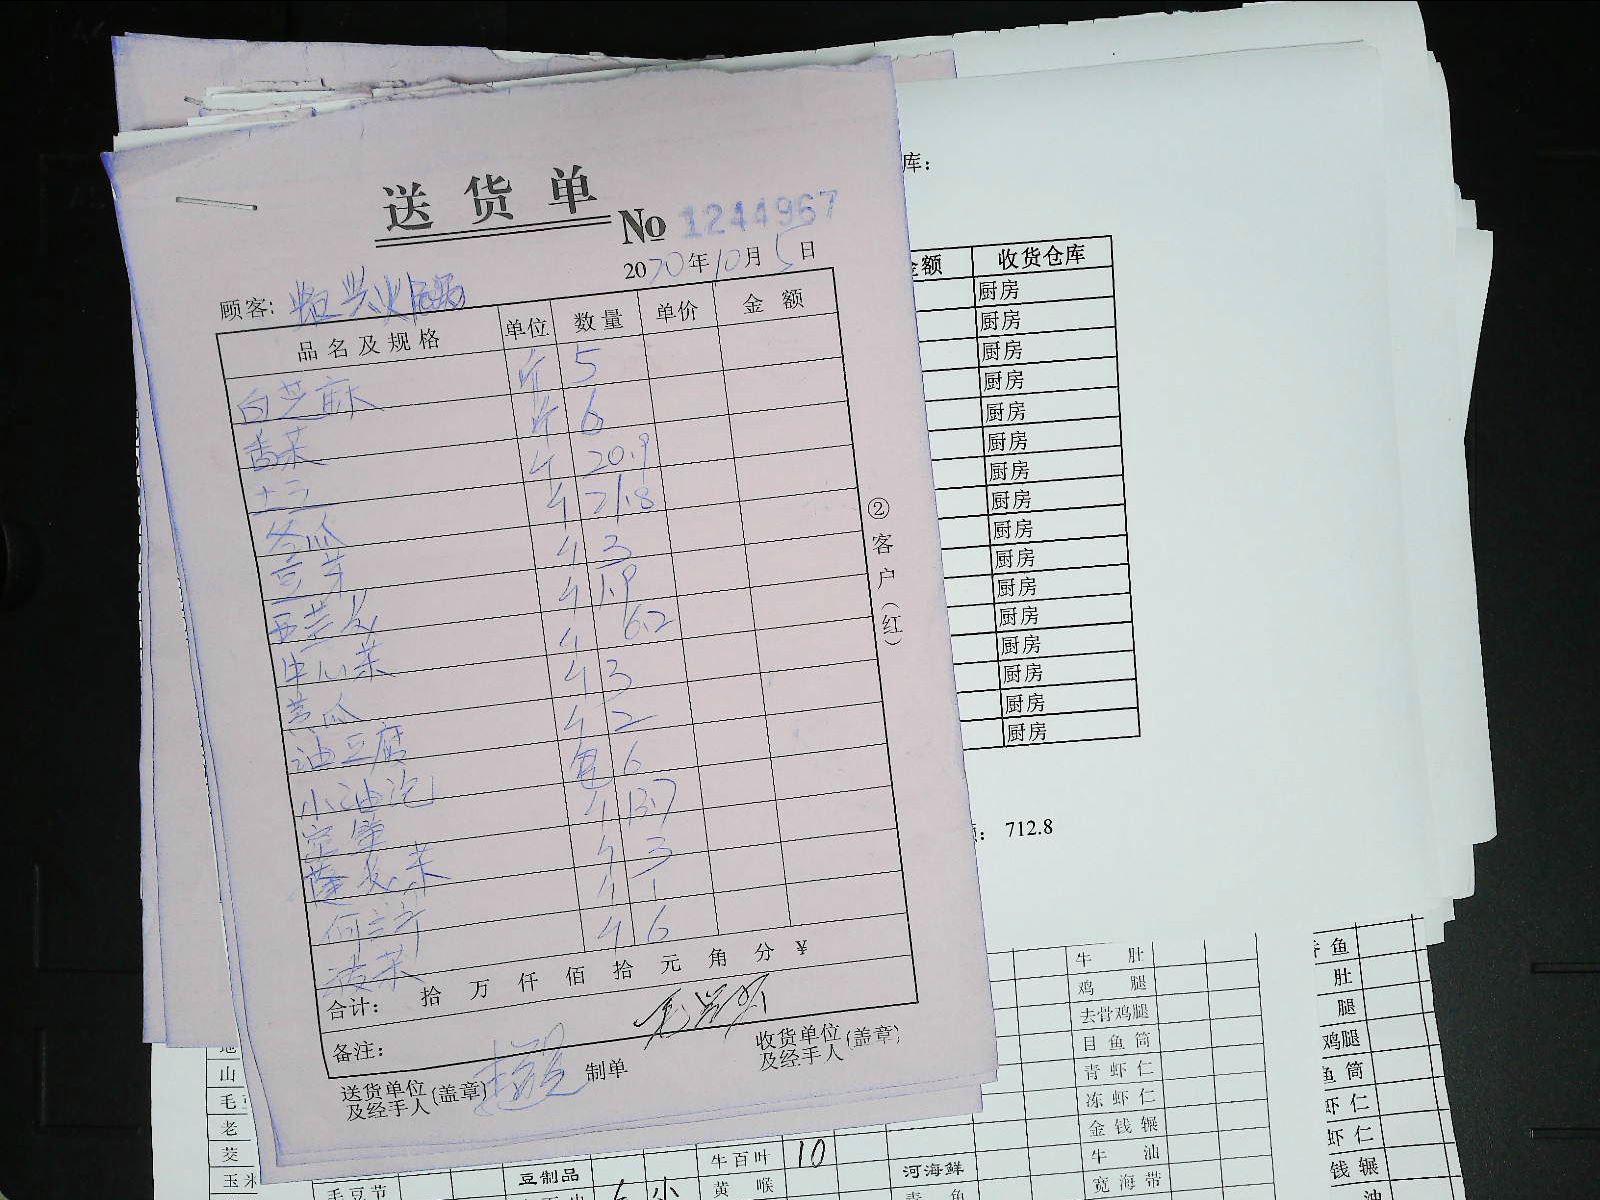 送货单
No 1244967
2020年10月5日
顾客:
品名及规格 单位 数量 单价 金额
白芝麻 斤 5
香菜 斤 6
土豆 斤 20.9
冬瓜 斤 21.8
豆芽 斤 3
西兰花 斤 1.9
中心菜 斤 6.2
黄瓜 斤 3
油豆腐 斤 2
小油泡 包 6
斤 13.7
菜 斤 3
斤 1
菜 斤 6
合计: 拾 万 仟 佰 拾 元 角 分 ¥
备注:
送货单位及经手人(盖章) 制单 收货单位及经手人(盖章)
②客户(红)
库:
金额 收货仓库
厨房
厨房
厨房
厨房
厨房
厨房
厨房
厨房
厨房
厨房
厨房
厨房
厨房
厨房
厨房
厨房
: 712.8
牛肚
鸡腿
去骨鸡腿
目鱼筒
青虾仁
冻虾仁
金钱辗
牛油
宽海带
鱼
肚
腿
鸡腿
鱼筒
虾仁
虾仁
钱辗
油
山
老
茭
玉米
毛豆节
豆制品
牛百叶 10
黄喉
河海鲜